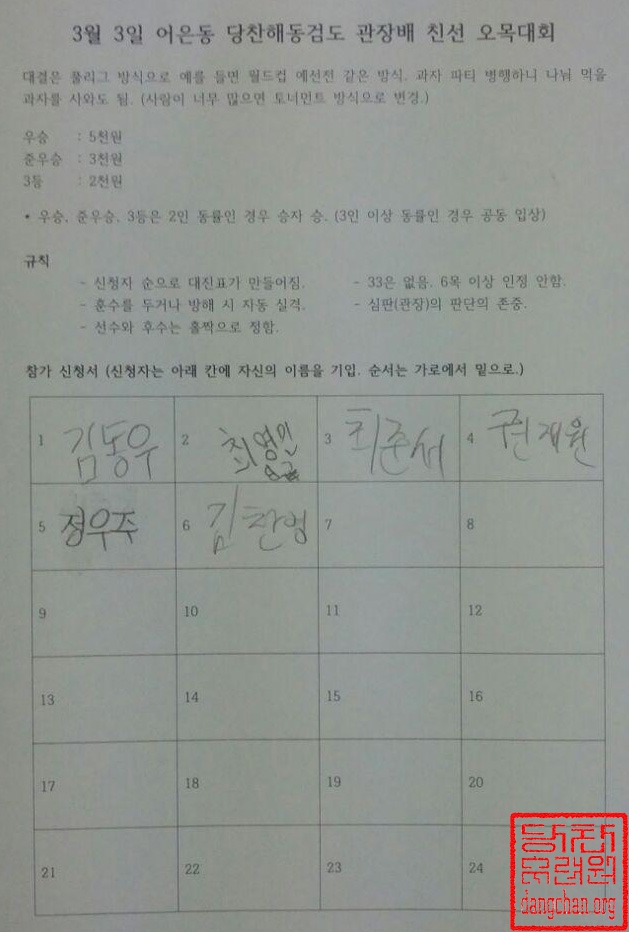 3월 3일 어은동 당찬해동검도 관장배 친선 오목대회
대결은 풀리그 방식으로 예를 들면 월드컵 예선전 같은 방식. 과자 파티 병행하니 나눠 먹을
과자를 사와도 됨. (사람이 너무 많으면 토너먼트 방식으로 변경.)
우승 : 5천원
준우승 : 3천원
3등 : 2천원
* 우승, 준우승, 3등은 2인 동률인 경우 승자 승. (3인 이상 동률인 경우 공동 입상)
규칙
- 신청자 순으로 대진표가 만들어짐. - 33은 없음. 6목 이상 인정 안함.
- 훈수를 두거나 방해 시 자동 실격. - 심판(관장)의 판단의 존중.
- 선수와 후수는 홀짝으로 정함.
참가 신청서 (신청자는 아래 칸에 자신의 이름을 기입. 순서는 가로에서 밑으로.)
1 김동우 2 최영민 3 최준서 4 권재원
5 정우주 6 김찬영 7 8
9 10 11 12
13 14 15 16
17 18 19 20
21 22 23 24
당찬
수련원
dangchan.org